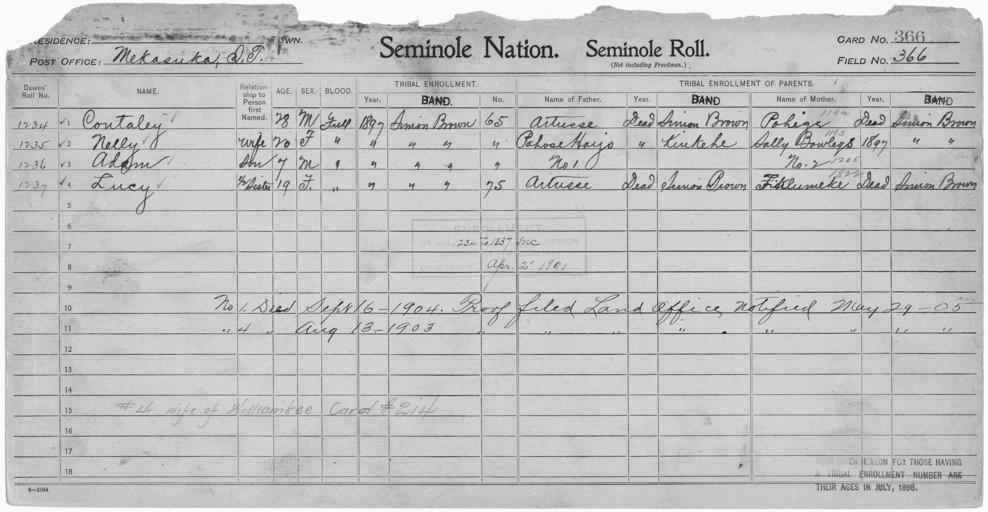 RESIDENCE: TOWN.
POST OFFICE: Mekasuka, I.T.
Seminole Nation. Seminole Roll.
(Not including Freedmen.)
CARD NO. 366
FIELD NO. 366
Dawes' Roll No. NAME. Relationship to Person first Named. AGE. SEX. BLOOD. TRIBAL ENROLLMENT. TRIBAL ENROLLMENT OF PARENTS.
Year. BAND. No. Name of Father. Year. BAND Name of Mother. Year. BAND
1234 1 Contaley 28 M Full 1897 Simion Brown 65 Artusse Dead Simion Brown Pohega 1192 Dead Simion Brown
1235 2 Nelly Wife 20 F " " " " " Pahose Hajo " Kinkehe Sally Bowlegs 1193 1897 " "
1236 3 Adam Son 7 M " " " " " No 1 No. 2 1205
1237 4 Lucy Sister 19 F. " " " " 75 Artusse Dead Simion Brown Dead Simion Brown
5
6
ENROLLMENT
7 1234 To 1237 Inc HEREON
8 Apr. 2" 1901
9
10 No 1. Died Sept 16-1904. Proof filed Land Office Notified May 29-05
11 " 4 " Aug 13-1903 " " " " " " "
12
13
14
15 #4 wife of Card #214
16
17
18
GIVEN HEREON FOR THOSE HAVING
A TRIBAL ENROLLMENT NUMBER ARE
THEIR AGES IN JULY, 1898.